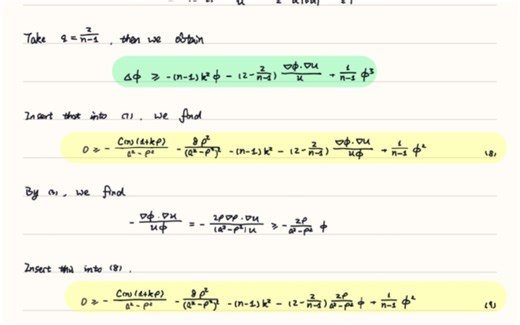 Take ε = 2/(n-1) , then we obtain
Δϕ ≥ -(n-1)k²ϕ - (2 - 2/(n-1)) (∇ϕ·∇u)/u + 1/(n-1) ϕ³
Insert that into (7), we find
0 ≥ - C(n)(1+kρ)/(a²-ρ²) - 8ρ²/(a²-ρ²)² - (n-1)k² - (2 - 2/(n-1)) (∇ϕ·∇u)/(uϕ) + 1/(n-1) ϕ² (8)
we find
- (∇ϕ·∇u)/(uϕ) = - (2ρ∇ρ·∇u)/((a²-ρ²)u) ≥ - 2ρ/(a²-ρ²) ϕ
Insert this into (8),
0 ≥ - C(n)(1+kρ)/(a²-ρ²) - 8ρ²/(a²-ρ²)² - (n-1)k² - (2 - 2/(n-1)) 2ρ/(a²-ρ²) ϕ + 1/(n-1) ϕ² (9)